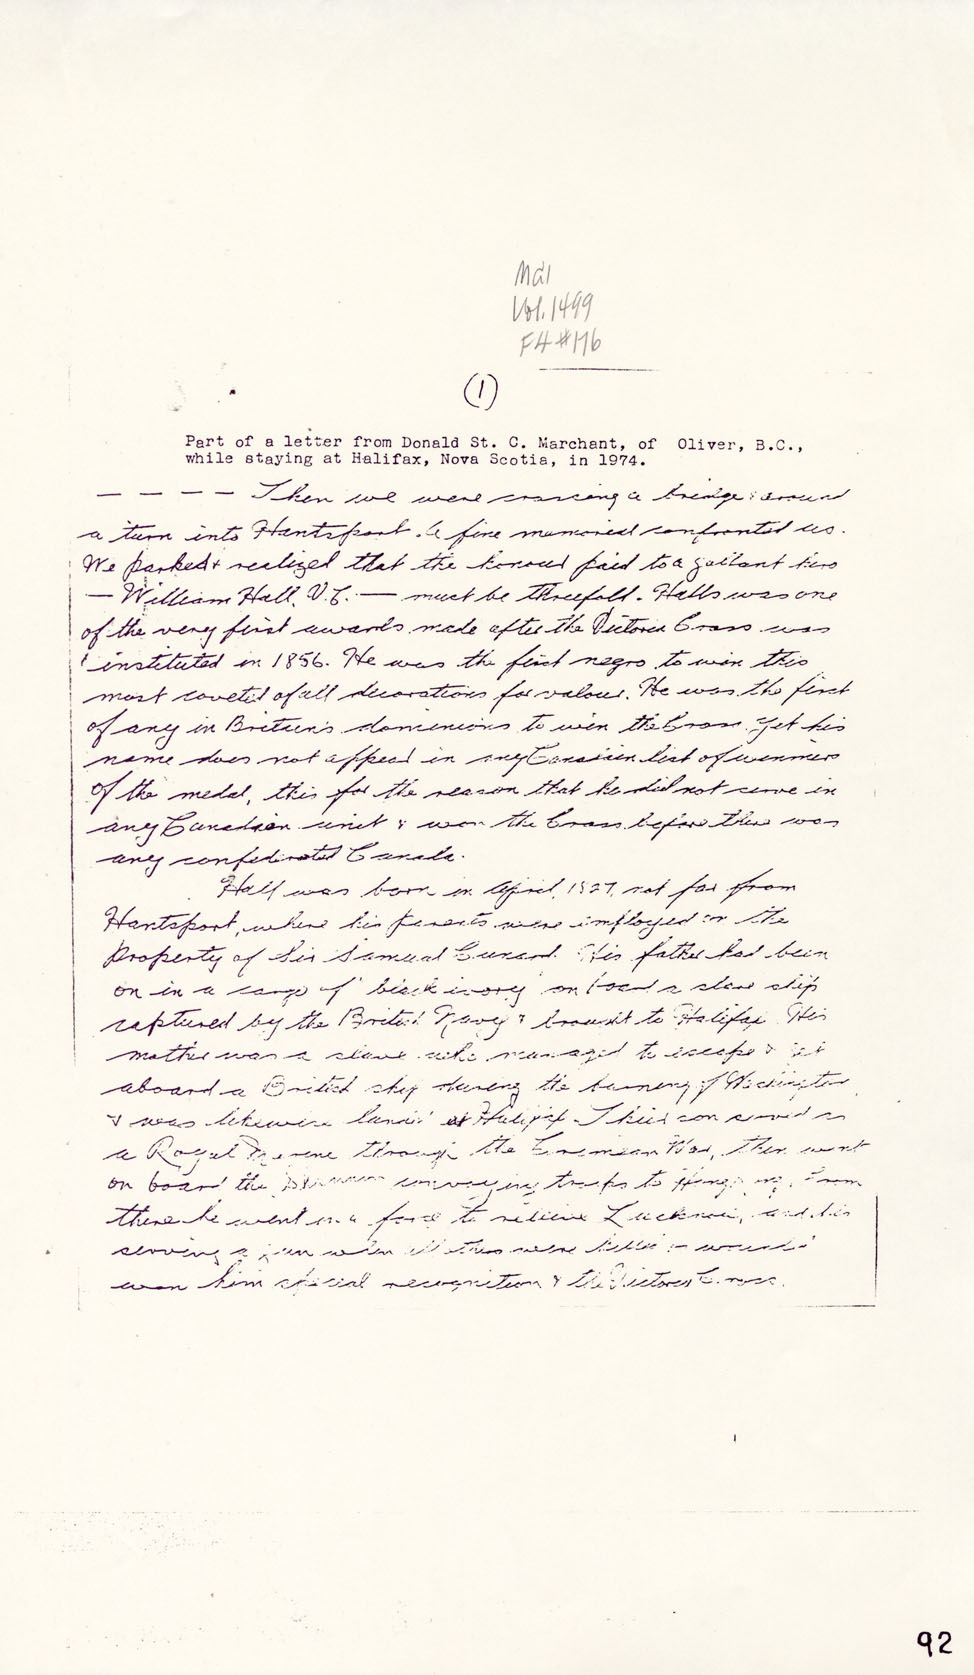 MG1
Vol. 1499
F4 #176
(1)
Part of a letter from Donald St. C. Marchant, of Oliver, B.C.,
while staying at Halifax, Nova Scotia, in 1974.
— — — — Then we were crossing a bridge & around
a turn into Hantsport. A fine memorial confronted us.
We parked & realized that the honour paid to a gallant hero
— William Hall, V.C. — must be threefold. Halls was one
of the very first awards made after the Victoria Cross was
instituted in 1856. He was the first negro to win this
most coveted of all decorations for valour. He was the first
of any in Britain's dominions to win the Cross. Yet his
name does not appear in any Canadian list of winners
of the medal, this for the reason that he did not serve in
any Canadian unit & won the Cross before there was
any confederated Canada.
Hall was born in April, 1827, not far from
Hantsport, where his parents were employed on the
Property of Sir Samuel Cunard. His father had been
on in a cargo of "black ivory" on board a slave ship
captured by the British Navy & brought to Halifax. His
mother was a slave who managed to escape & get
aboard a British ship during the burning of Washington
& was likewise landed at Halifax. Their son served as
a Royal Marine through the Crimean War, then went
on board the Shannon convoying troops to Hong Kong. From
there he went in a force to relieve Lucknow, and his
serving a gun when all others were killed or wounded
won him special recognition & the Victoria Cross.
92